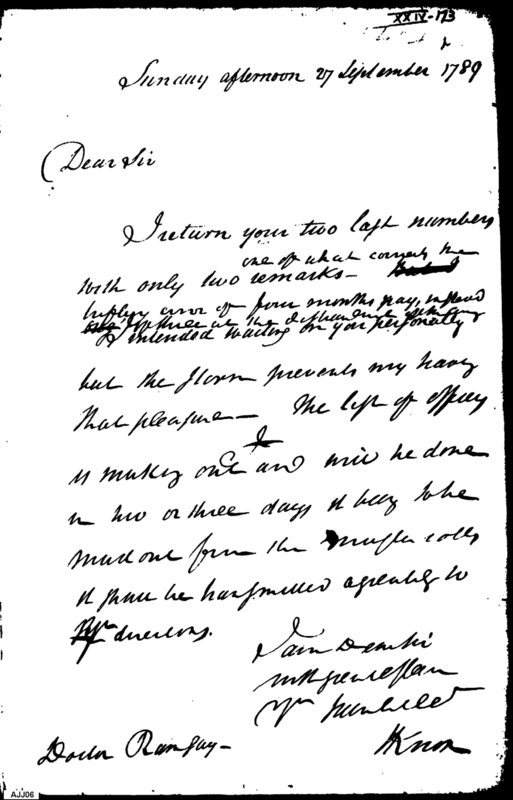 XXIV-173
Sunday afternoon 27 September 1789
Dear Sir
I return your two last numbers
one of what corrects the
with only two remarks—
error of four months pay, instead
of three at the disbandment of the army
I intended waiting on you personally
but the storm prevents my having
that pleasure— The list of officers
is making out and will be done
in two or three days it being to be
made out from the muster rolls
it shall be transmitted agreeably to
directions.
I am Dear Sir
with great esteem
Yr humble Set
HKnox
Doctor Ramsay—
AJJ06